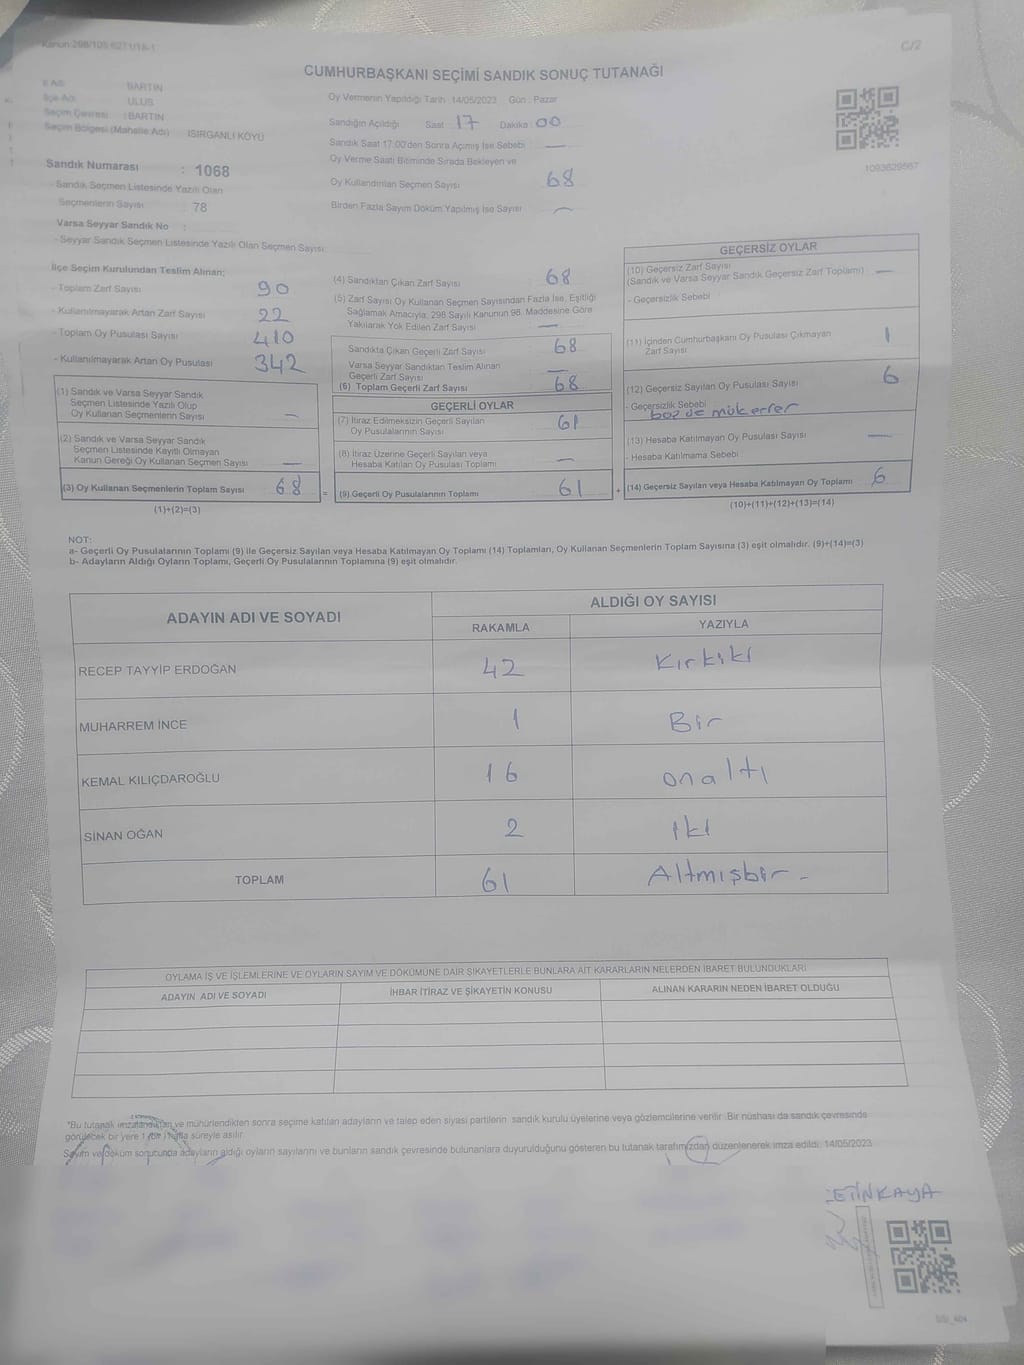 Kanun:298/105;6271/18-1
C/2
CUMHURBAŞKANI SEÇİMİ SANDIK SONUÇ TUTANAĞI
İl Adı : BARTIN
İlçe Adı : ULUS
Seçim Çevresi : BARTIN
Seçim Bölgesi (Mahalle Adı) : ISIRGANLI KÖYÜ
Oy Vermenin Yapıldığı Tarih 14/05/2023 Gün : Pazar
Sandığın Açıldığı Saat 17 Dakika : 00
Sandık Saat 17.00'den Sonra Açımış İse Sebebi —
Oy Verme Saati Bitiminde Sırada Bekleyen ve
Oy Kullandırılan Seçmen Sayısı 68
Birden Fazla Sayım Döküm Yapılmış İse Sayısı —
1093629567
Sandık Numarası : 1068
- Sandık Seçmen Listesinde Yazılı Olan
Seçmenlerin Sayısı : 78
Varsa Seyyar Sandık No :
- Seyyar Sandık Seçmen Listesinde Yazılı Olan Seçmen Sayısı:
İlçe Seçim Kurulundan Teslim Alınan;
- Toplam Zarf Sayısı 90
- Kullanılmayarak Artan Zarf Sayısı 22
- Toplam Oy Pusulası Sayısı 410
- Kullanılmayarak Artan Oy Pusulası 342
(1) Sandık ve Varsa Seyyar Sandık
Seçmen Listesinde Yazılı Olup
Oy Kullanan Seçmenlerin Sayısı —
(2) Sandık ve Varsa Seyyar Sandık
Seçmen Listesinde Kayıtlı Olmayan
Kanun Gereği Oy Kullanan Seçmen Sayısı —
(3) Oy Kullanan Seçmenlerin Toplam Sayısı 68
(1)+(2)=(3)
(4) Sandıktan Çıkan Zarf Sayısı 68
(5) Zarf Sayısı Oy Kullanan Seçmen Sayısından Fazla İse, Eşitliği
Sağlamak Amacıyla, 298 Sayılı Kanunun 98. Maddesine Göre
Yakılarak Yok Edilen Zarf Sayısı —
Sandıkta Çıkan Geçerli Zarf Sayısı 68
Varsa Seyyar Sandıktan Teslim Alınan
Geçerli Zarf Sayısı —
(6) Toplam Geçerli Zarf Sayısı 68
GEÇERLİ OYLAR
(7) İtiraz Edilmeksizin Geçerli Sayılan
Oy Pusulalarının Sayısı 61
(8) İtiraz Üzerine Geçerli Sayılan veya
Hesaba Katılan Oy Pusulası Toplamı —
= (9) Geçerli Oy Pusulalarının Toplamı 61 +
GEÇERSİZ OYLAR
(10) Geçersiz Zarf Sayısı
(Sandık ve Varsa Seyyar Sandık Geçersiz Zarf Toplamı) —
- Geçersizlik Sebebi
(11) İçinden Cumhurbaşkanı Oy Pusulası Çıkmayan
Zarf Sayısı 1
(12) Geçersiz Sayılan Oy Pusulası Sayısı 6
- Geçersizlik Sebebi mükerrer
(13) Hesaba Katılmayan Oy Pusulası Sayısı —
- Hesaba Katılmama Sebebi
(14) Geçersiz Sayılan veya Hesaba Katılmayan Oy Toplamı 6
(10)+(11)+(12)+(13)=(14)
NOT:
a- Geçerli Oy Pusulalarının Toplamı (9) ile Geçersiz Sayılan veya Hesaba Katılmayan Oy Toplamı (14) Toplamları, Oy Kullanan Seçmenlerin Toplam Sayısına (3) eşit olmalıdır. (9)+(14)=(3)
b- Adayların Aldığı Oyların Toplamı, Geçerli Oy Pusulalarının Toplamına (9) eşit olmalıdır.
ADAYIN ADI VE SOYADI
ALDIĞI OY SAYISI
RAKAMLA YAZIYLA
RECEP TAYYİP ERDOĞAN 42 Kırkiki
MUHARREM İNCE 1 Bir
KEMAL KILIÇDAROĞLU 16 onaltı
SİNAN OĞAN 2 iki
TOPLAM 61 Altmışbir -
OYLAMA İŞ VE İŞLEMLERİNE VE OYLARIN SAYIM VE DÖKÜMÜNE DAİR ŞİKAYETLERLE BUNLARA AİT KARARLARIN NELERDEN İBARET BULUNDUKLARI
ADAYIN ADI VE SOYADI İHBAR İTİRAZ VE ŞİKAYETİN KONUSU ALINAN KARARIN NEDEN İBARET OLDUĞU
*Bu tutanak imzalandıktan ve mühürlendikten sonra seçime katılan adayların ve talep eden siyasi partilerin sandık kurulu üyelerine veya gözlemcilerine verilir. Bir nüshası da sandık çevresinde
görülecek bir yere 1 (bir) hafta süreyle asılır.
Sayım ve döküm sonucunda adayların aldığı oyların sayılarını ve bunların sandık çevresinde bulunanlara duyurulduğunu gösteren bu tutanak tarafımızdan düzenlenerek imza edildi. 14/05/2023
ETİNKAYA